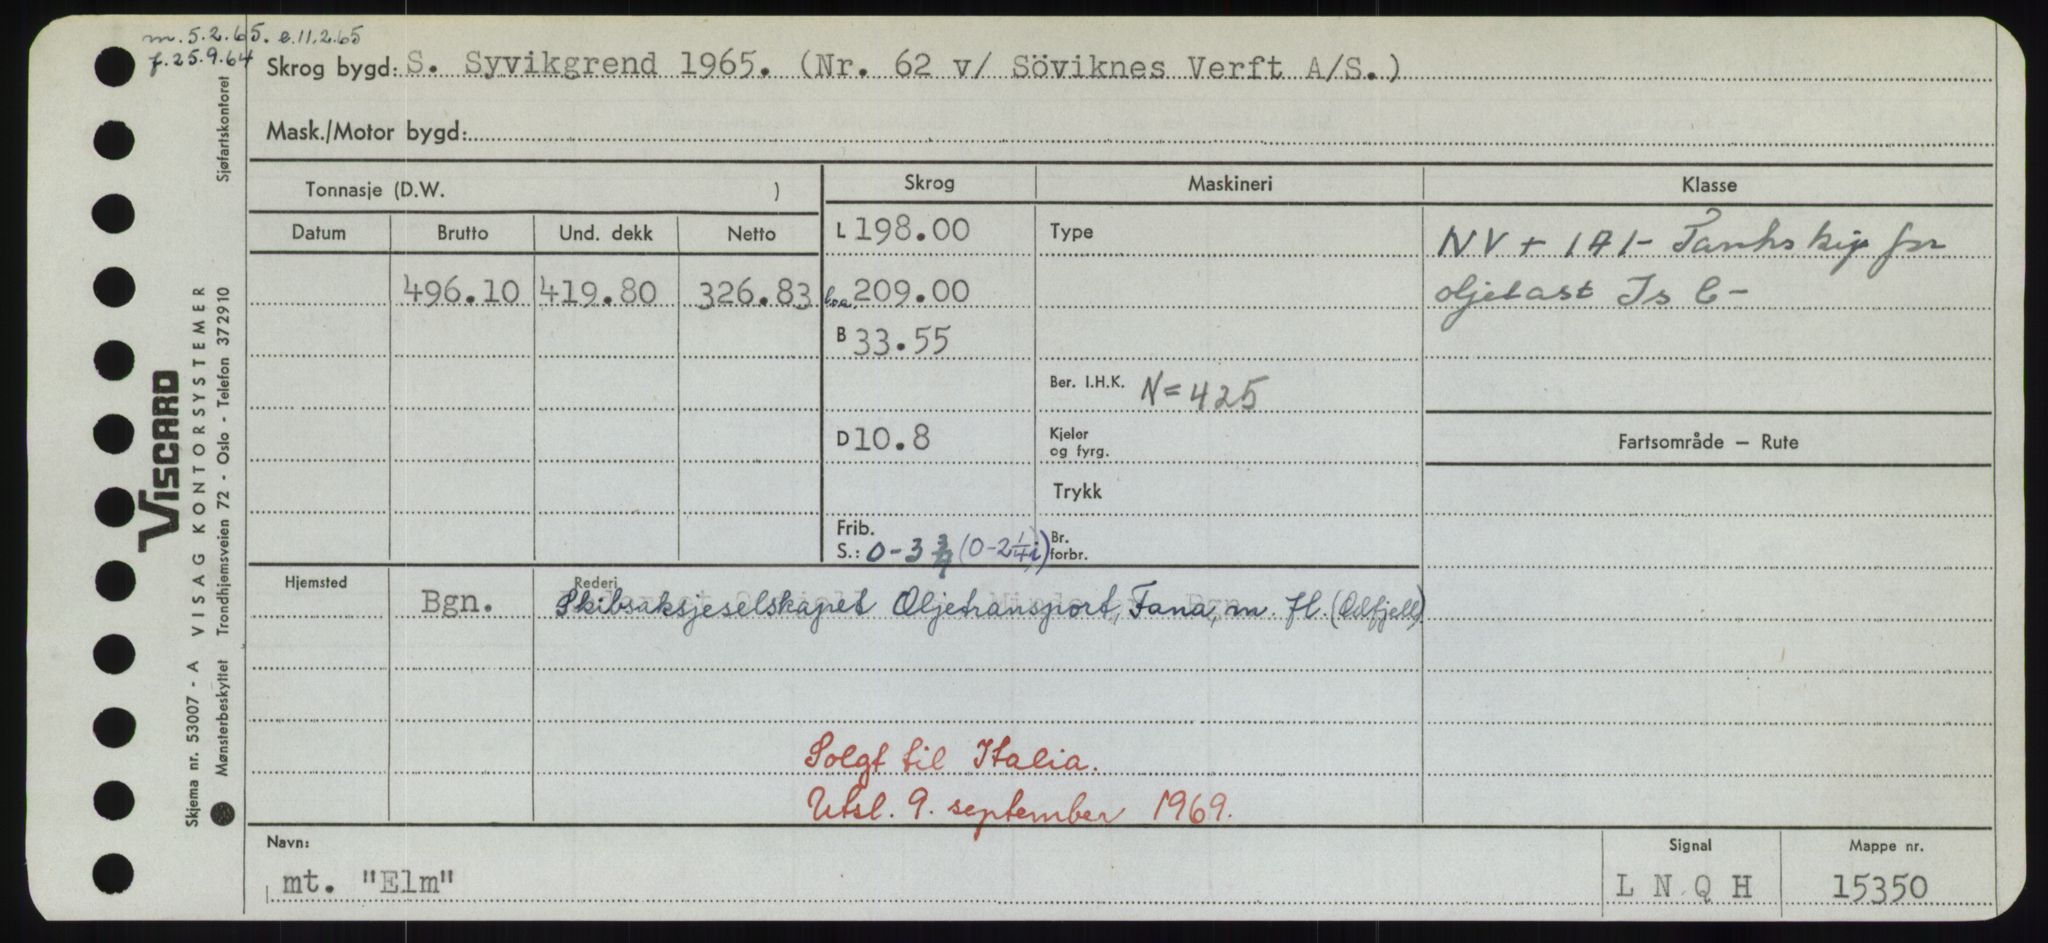 m. 5.2.65. e.11.2.65
f.25.9.64
Skrog bygd: S. Syvikgrend 1965. (Nr. 62 v/ Söviknes Verft A/S.)
Mask./Motor bygd:
Tonnasje (D.W. )
Skrog Maskineri Klasse
Datum Brutto Und. dekk Netto
L 198.00 Type NV + 1A1- Tankskip for
496.10 419.80 326.83 loa. 209.00 oljelast Is C-
B 33.55
Ber. I.H.K. N=425
D 10.8 Kjeler og fyrg. Fartsområde — Rute
Trykk
Frib. S.: 0-3 3/4 (0-2 1/4 i) Br. forbr.
Hjemsted Rederi
Bgn. Skibsaksjeselskapet Oljetransport, Fana, m. fl. (Odfjell)
Solgt til Italia.
Utsl. 9. september 1969.
Navn: Signal Mappe nr.
mt. "Elm" L N Q H 15350
Sjøfartskontoret
VISCARD
VISAG KONTORSYSTEMER
Trondhjemsveien 72 - Oslo - Telefon 37 29 10
Skjema nr. 53007 - A
Mønsterbeskyttet